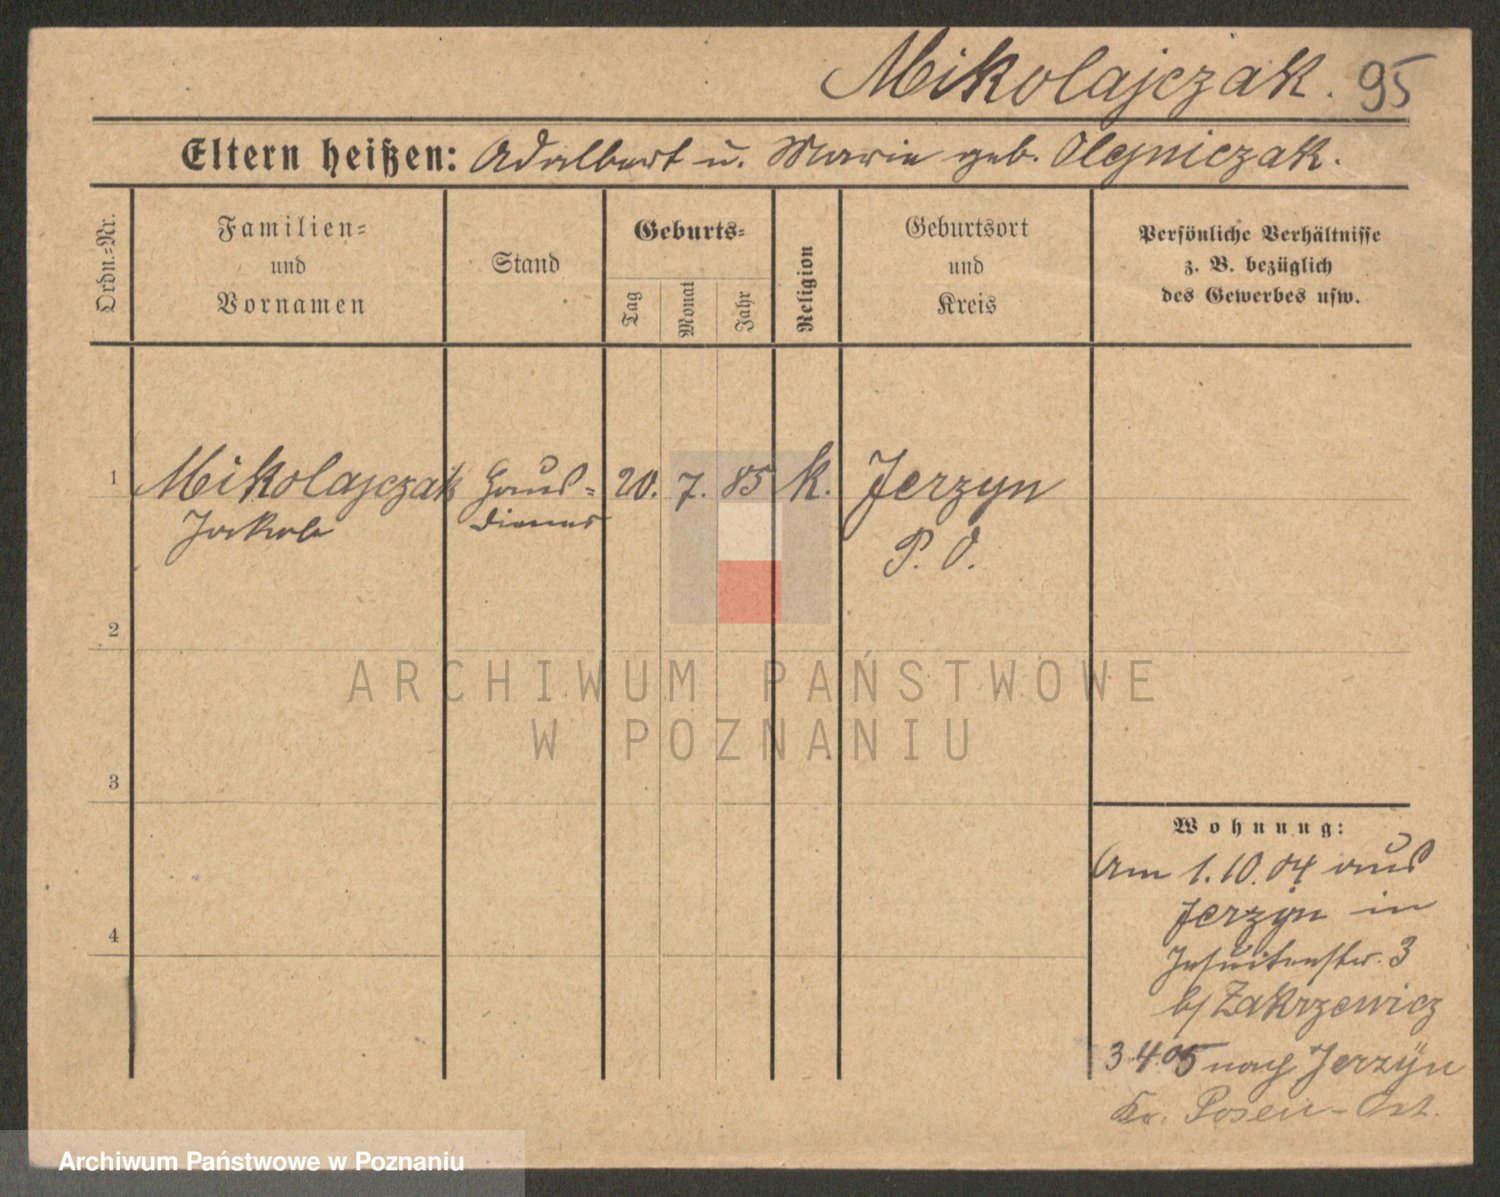 Mikolajczak. 95
Eltern heißen: Adalbert u. Marie geb. Olejniczak.
Ordn.=Nr.
Familien=
und
Vornamen
Stand
Geburts=
Tag
Monat
Jahr
Religion
Geburtsort
und
Kreis
Persönliche Verhältnisse
z. B. bezüglich
des Gewerbes usw.
1 Mikolajczak Haus= 20. 7. 85 k. Jerzyn
Jakob diener P. O.
2
3
4
Wohnung:
Am 1.10.04 aus
Jerzyn in
Jesuitenstr. 3
b/ Zakrzewicz
3 4 05 nach Jerzyn
Kr. Posen-Ost.
ARCHIWUM PAŃSTWOWE
W POZNANIU
Archiwum Państwowe w Poznaniu